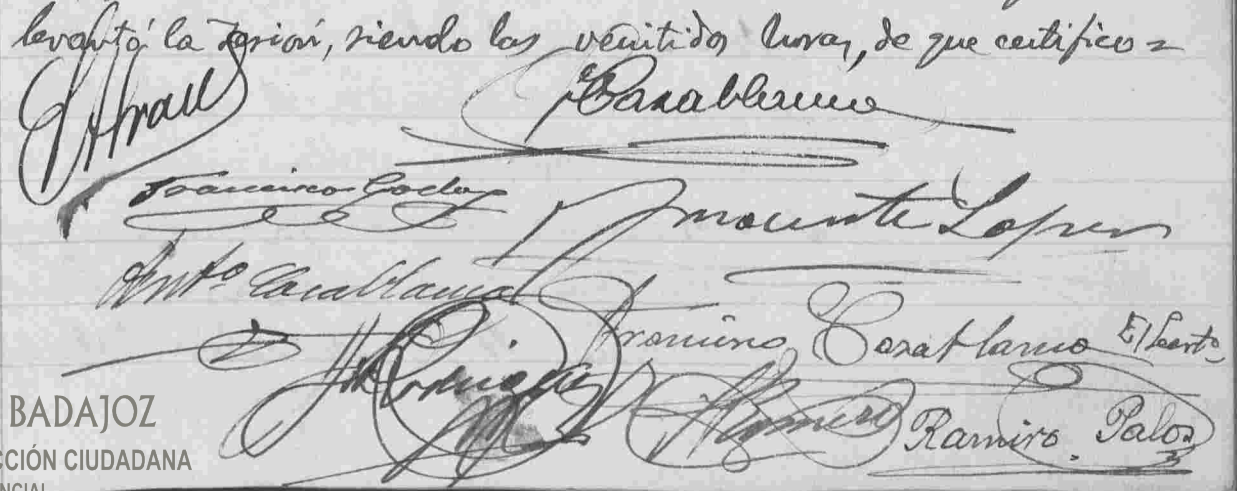 levantó la sesión, siendo las veintidos horas, de que certifico =
Casablanca
Francisco Godoy
Inocente Lopez
Antº Casablanca
Francisco Casablanca El Secrtº
Ramiro Palos
BADAJOZ
CCIÓN CIUDADANA
NCIAL